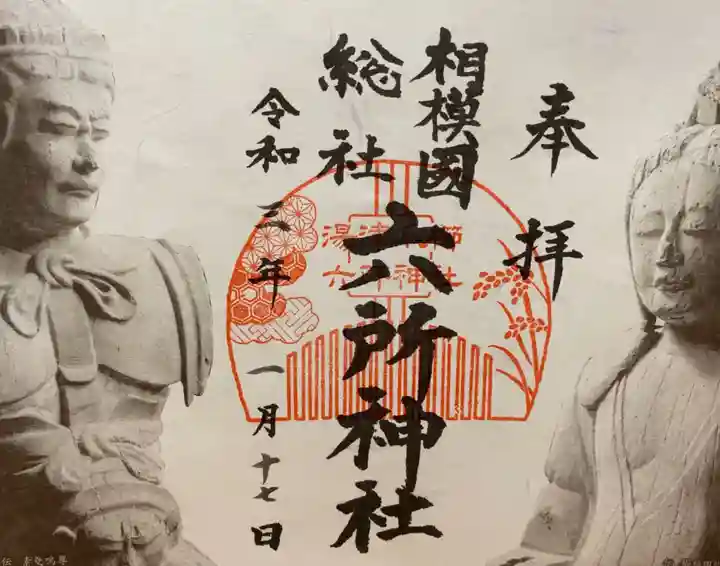 奉拝
相模國
総社
六所神社
令和三年
一月十七日
六所神社
伝 素戔嗚尊